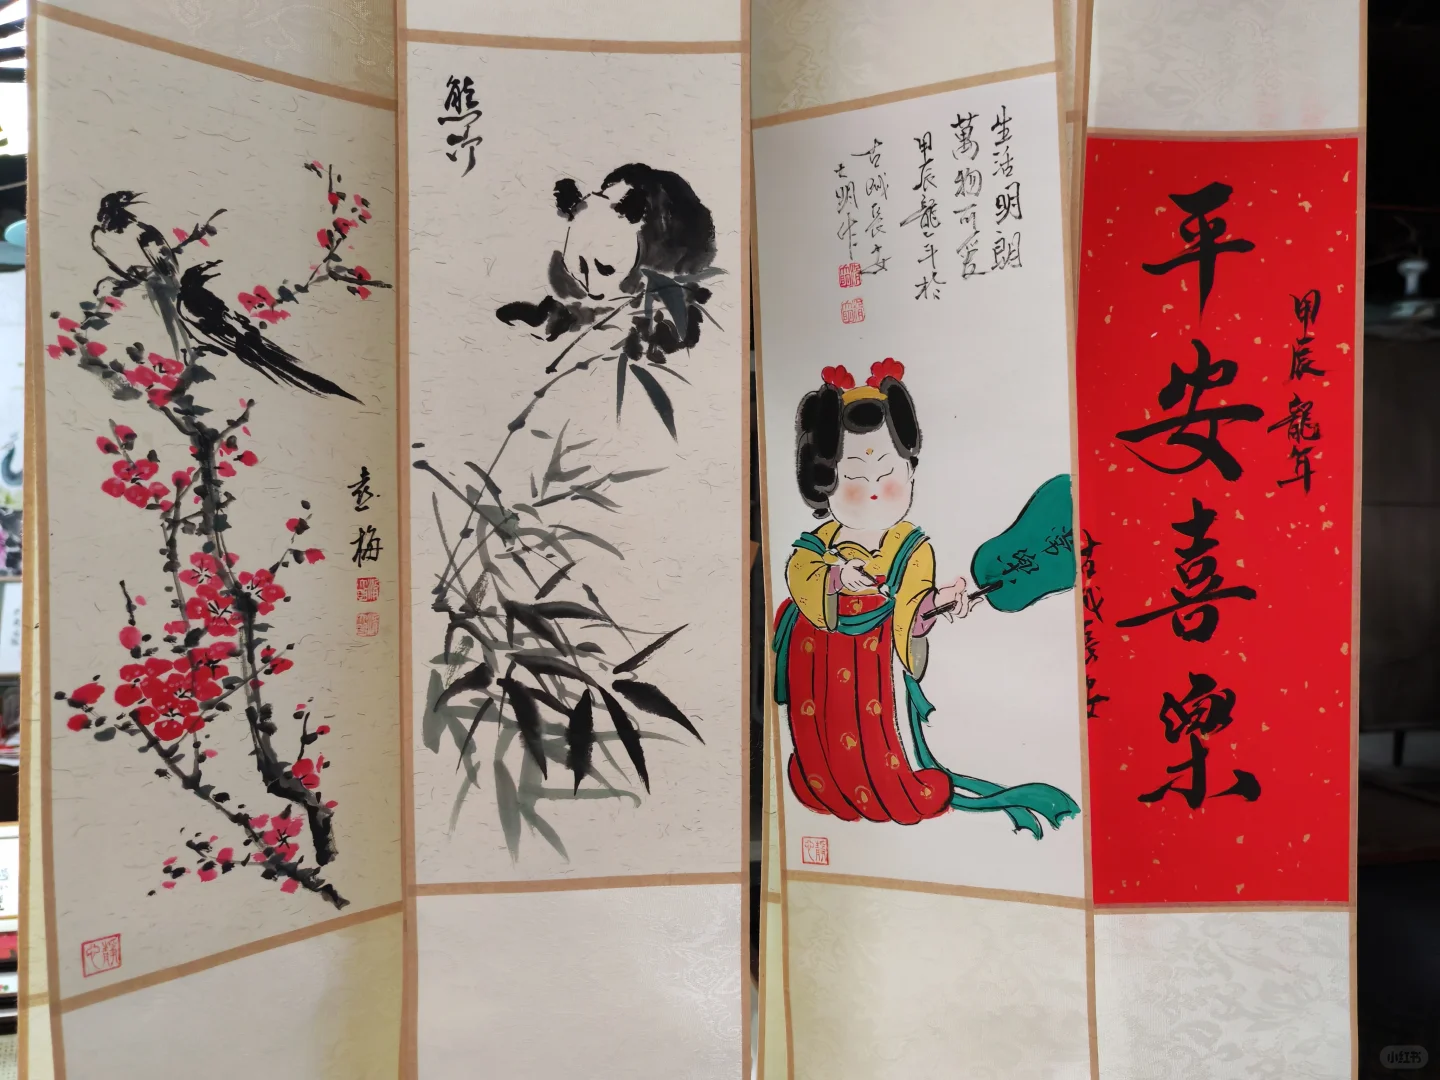 喜梅
熊竹
生活明朗
萬物可爱
甲辰龍年於
古城長安
大明作
甲辰龍年
平安喜樂
古城長安
静心
静心
小红书